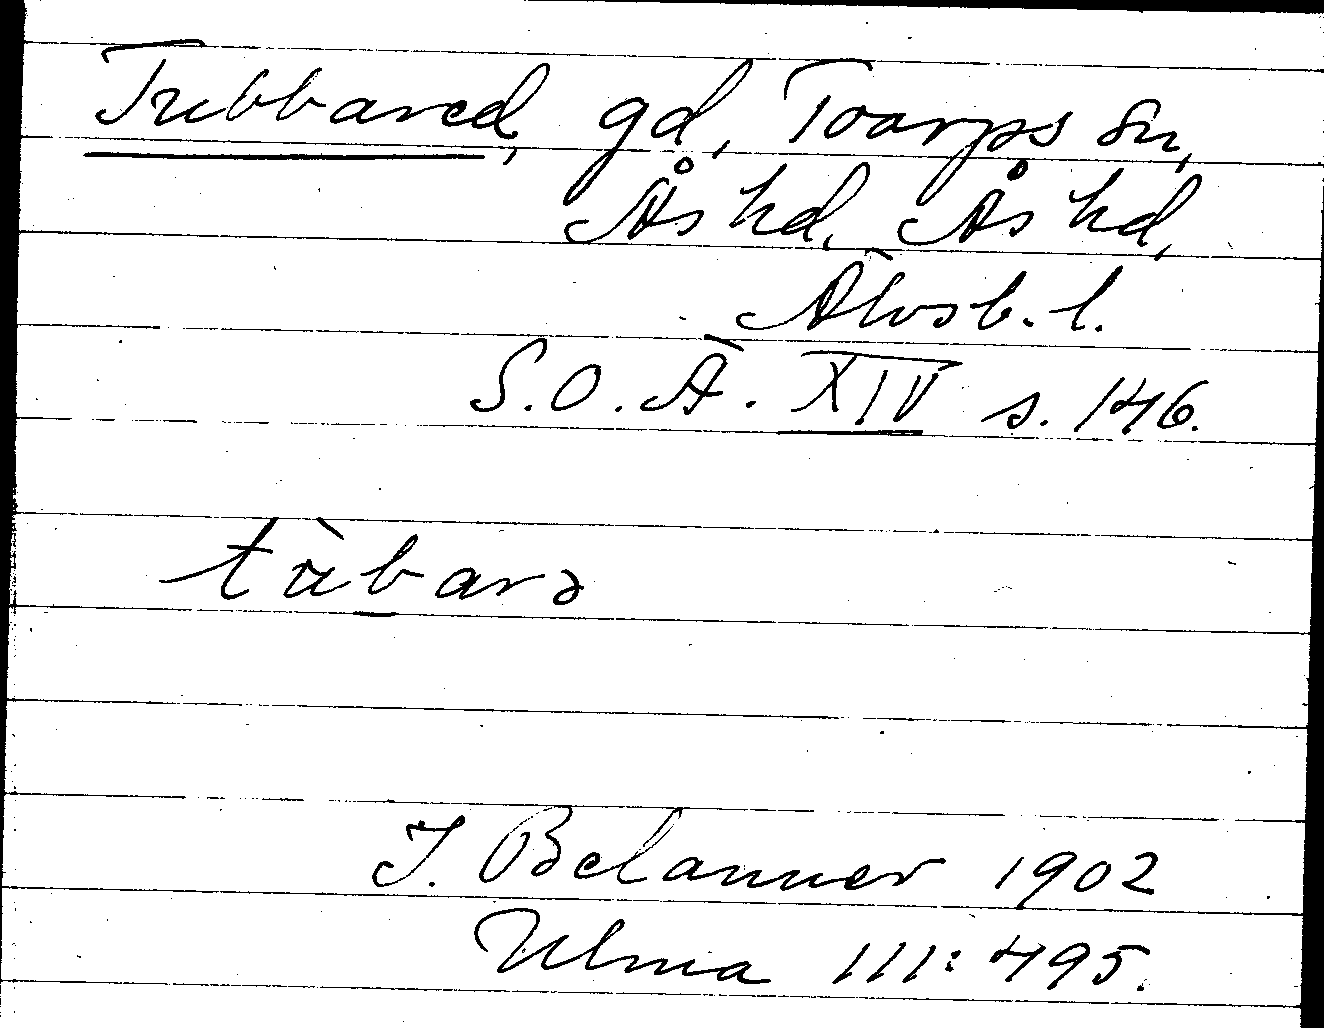 Tubbared, gd, Toarps sn,
Ås hd, Ås hd,
Älvsb. l.
S.O.Ä. XIV s. 146.
tùbarə
J. Belanner 1902
Ulma 111:495.